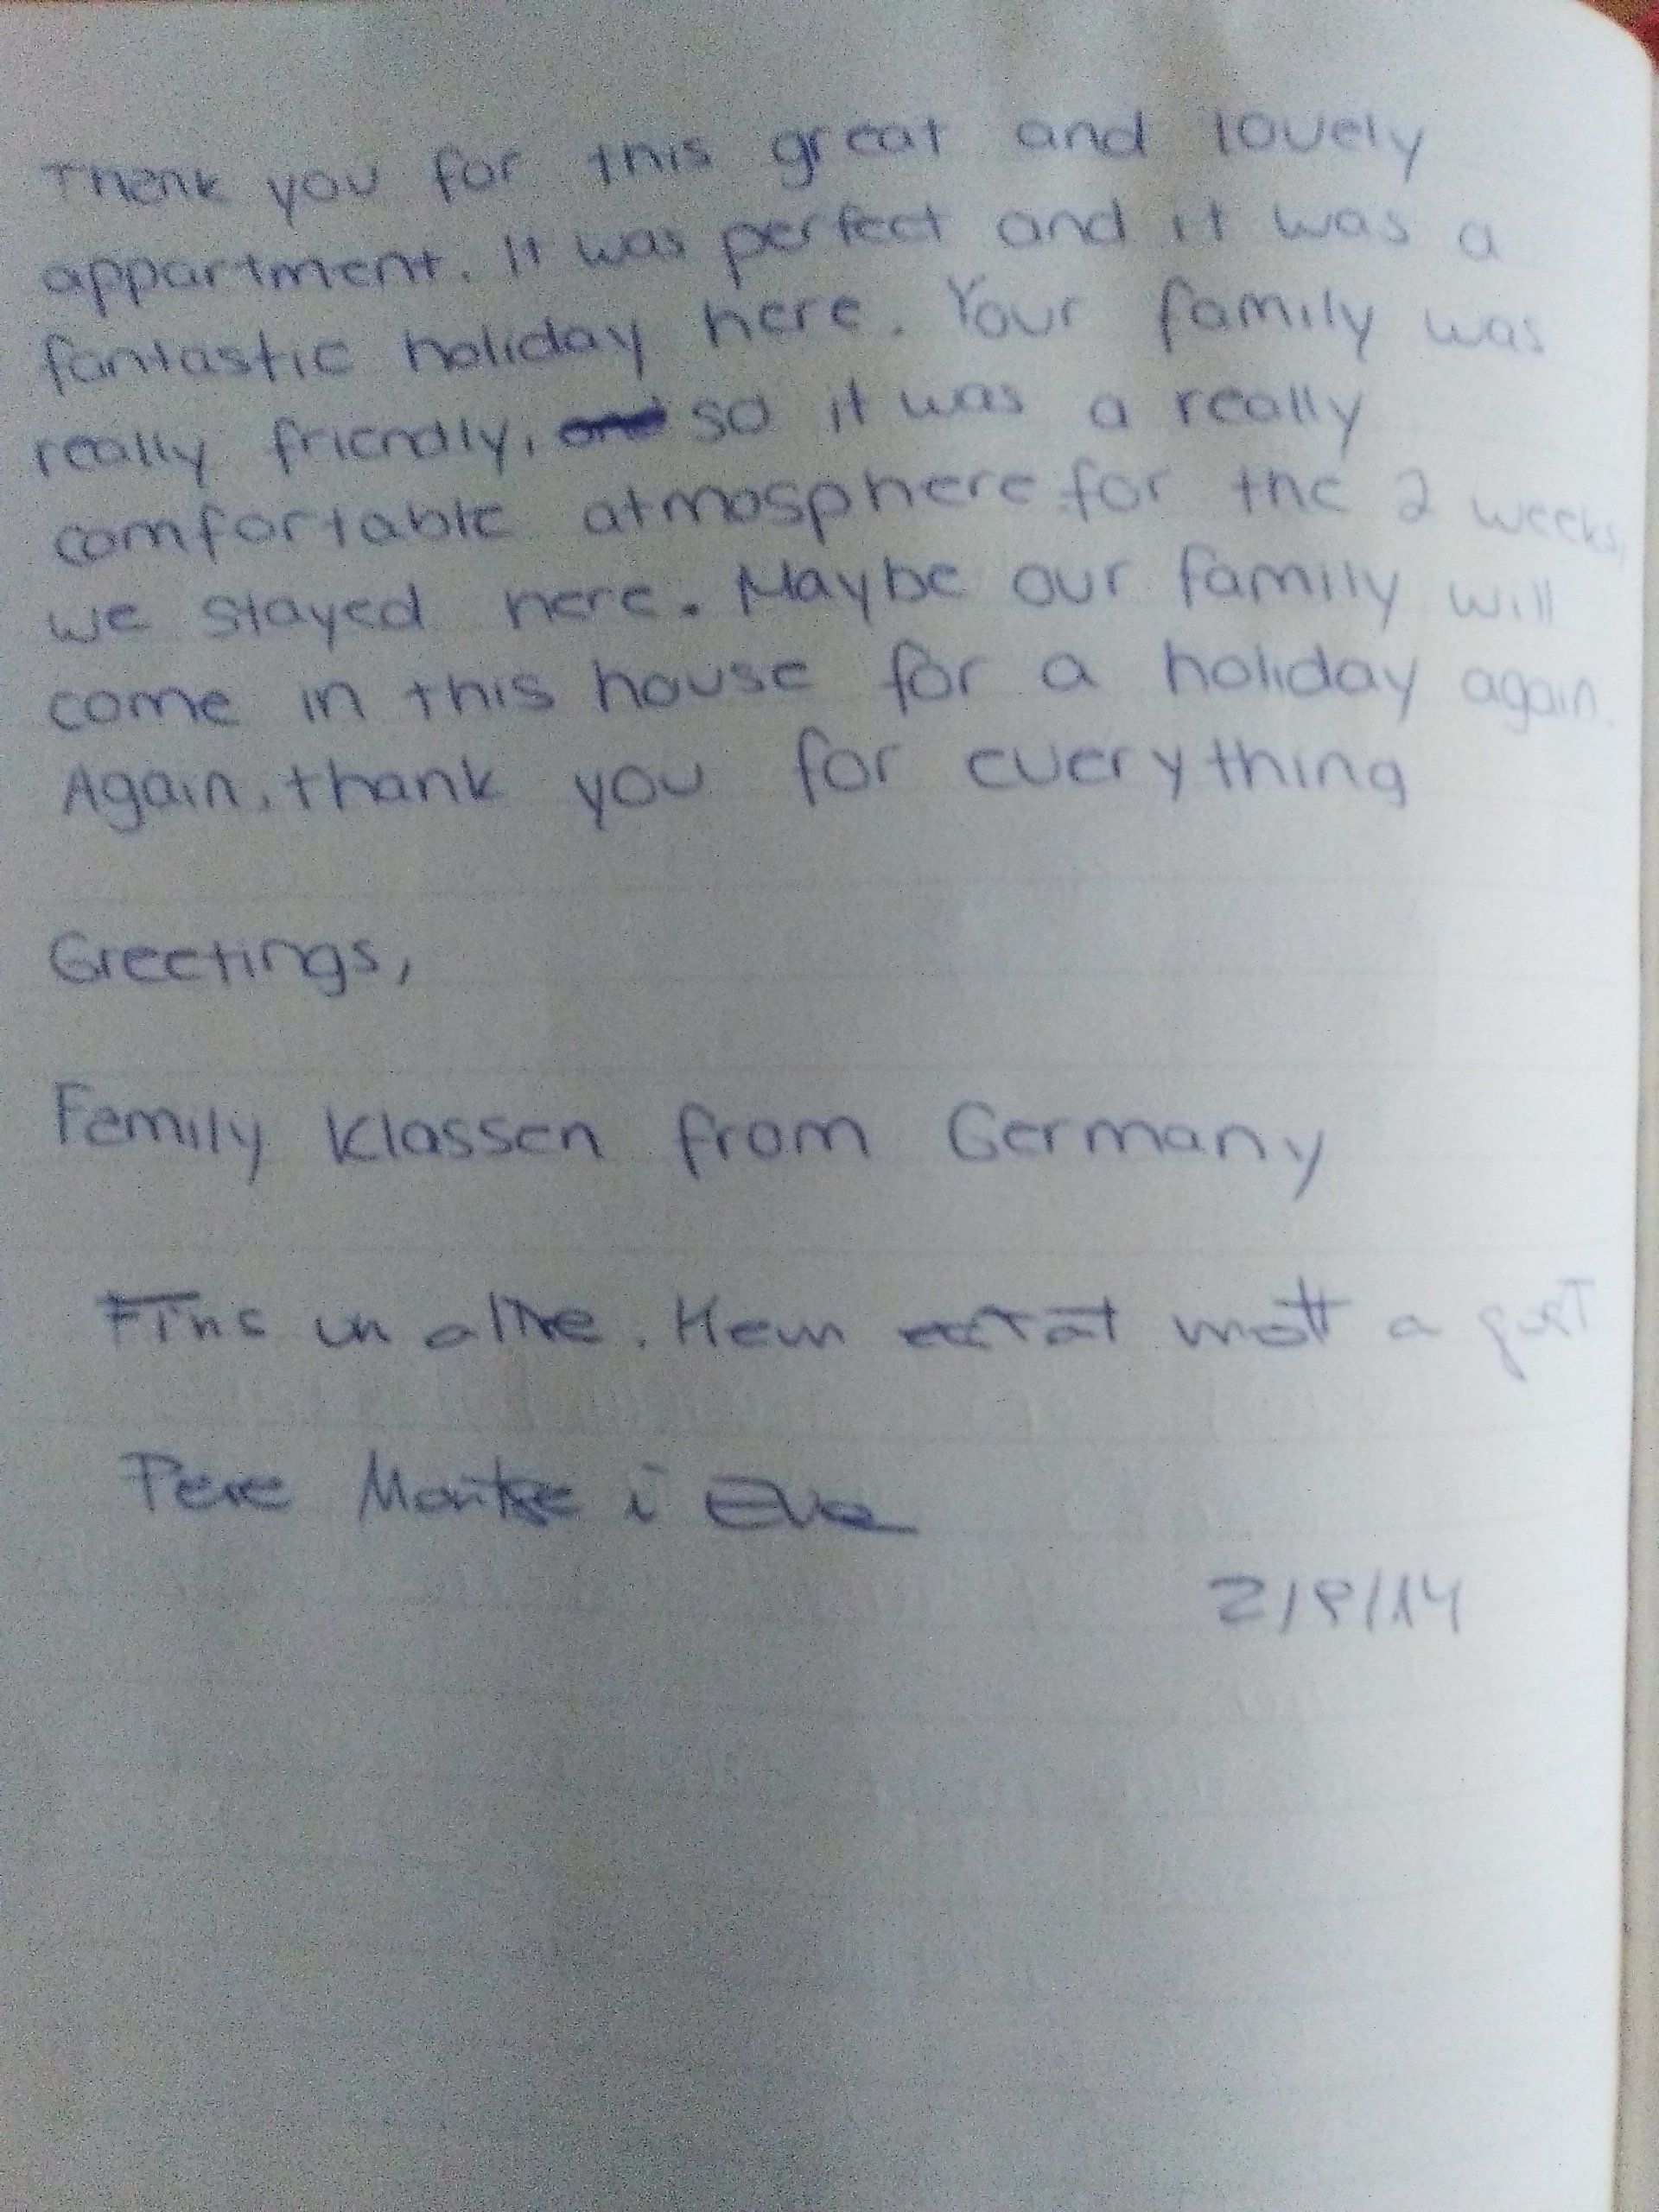 Thank you for this great and lovely
appartment. It was perfect and it was a
fantastic holiday here. Your family was
really friendly, so it was a really
comfortable atmosphere for the 2 weeks,
we stayed here. Maybe our family will
come in this house for a holiday again.
Again, thank you for everything
Greetings,
Family Klassen from Germany
Fins un altre. Hem estat molt a gust
Pere Montse i Eva
2/9/14